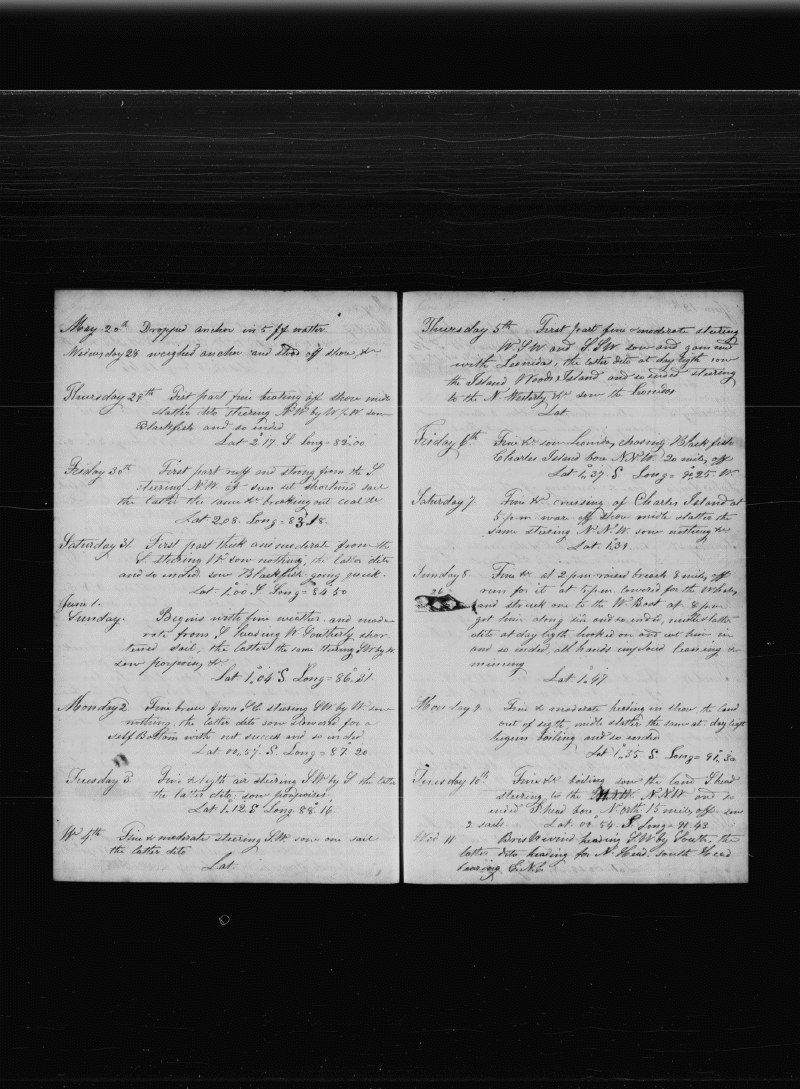 May. 20th Dropped anchor in 5 ff watter
Wednesday 28 weighed anchor and stood off shore, &c
Thursday 29th First part fine beating off shore midle
& latter dito steering N.W. by W. saw
Blackfish and so ended
Lat 2°.17 S Long = 82°.00
Friday 30th First part ruff and strong from the S.
steering N.W. at sun set shortned sail
the latter the same &c breaking out coal &c
Lat 2.08. Long = 83.18.
Saturday 31. First part thick and moderate from the
S. steering W saw nothing, the latter dito
and so ended saw Blackfish going quick.
Lat 1.00 S Long = 84 50
June 1.
Sunday. Begins with fine weather and mode
rate from S steering W Southerly shor
tened sail, the latter the same steering SW by W
saw porpoises, &c
Lat 1°.04 S. Long = 86°.21.
Monday 2. Fine breese from SE steering SW by W saw
nothing, the latter dito saw lowered for a
self Bottom with out success and so ended
Lat 00°.57 S. Long = 87° 20
Tuesday 3. Fine & ligth air steering SW by S the latter
the latter dito, saw porpoises
Lat 1°.12 S Long 88°.16.
W. 4th Fine & moderate steering SW. saw one sail
the latter dito
Lat.
Thursday 5th First part fine & moderate steering
W.S.W and S.SW. saw and gamend
with Leonidas, the latter dito at day ligth saw
the Island Woods Island and so ended steering
to the N. Westerly &c saw the Leonidas
Lat
Friday 6th Fine &c saw Leonidas, chasing Blackfish
Charles Island bore N.N.W. 20 miles off
Lat 1°.37 S Long = 90°.25 W.
Saturday 7. Fine &c. cruising of Charles Island at
5 p.m. ware off shore midle & latter the
same steering N.N.W. saw nothing &c
Lat. 1.31
Sunday 8. Fine &c at 2 p.m. raised breach 8 miles off
run for it at 5 p.m. lowered for the Whales
26
and struck one to the W. Boat at 8 p.m
got him along side and so ended, midle & latter
dito at day ligth hooked on and cut him in
and so ended, all hands imploid leaning &
mincing
Lat 1°.47.
Monday 9 Fine & moderate heading in shore the land
out of sigth, midle & latter the same at day ligth
begins boiling and so ended
Lat 1°.35 S. Long = 91°.30
Tuesday 10th. Fine &c boiling saw the land S. head
steering to the N.NW and so
ended S. head bore North 15 miles off saw
2 sails Lat 00° 54. S Long 91.43.
Wed 11. Bris Vivind heading S.W by South, the
latter dito heading for N. Head, South Head
bearing E.N.E.